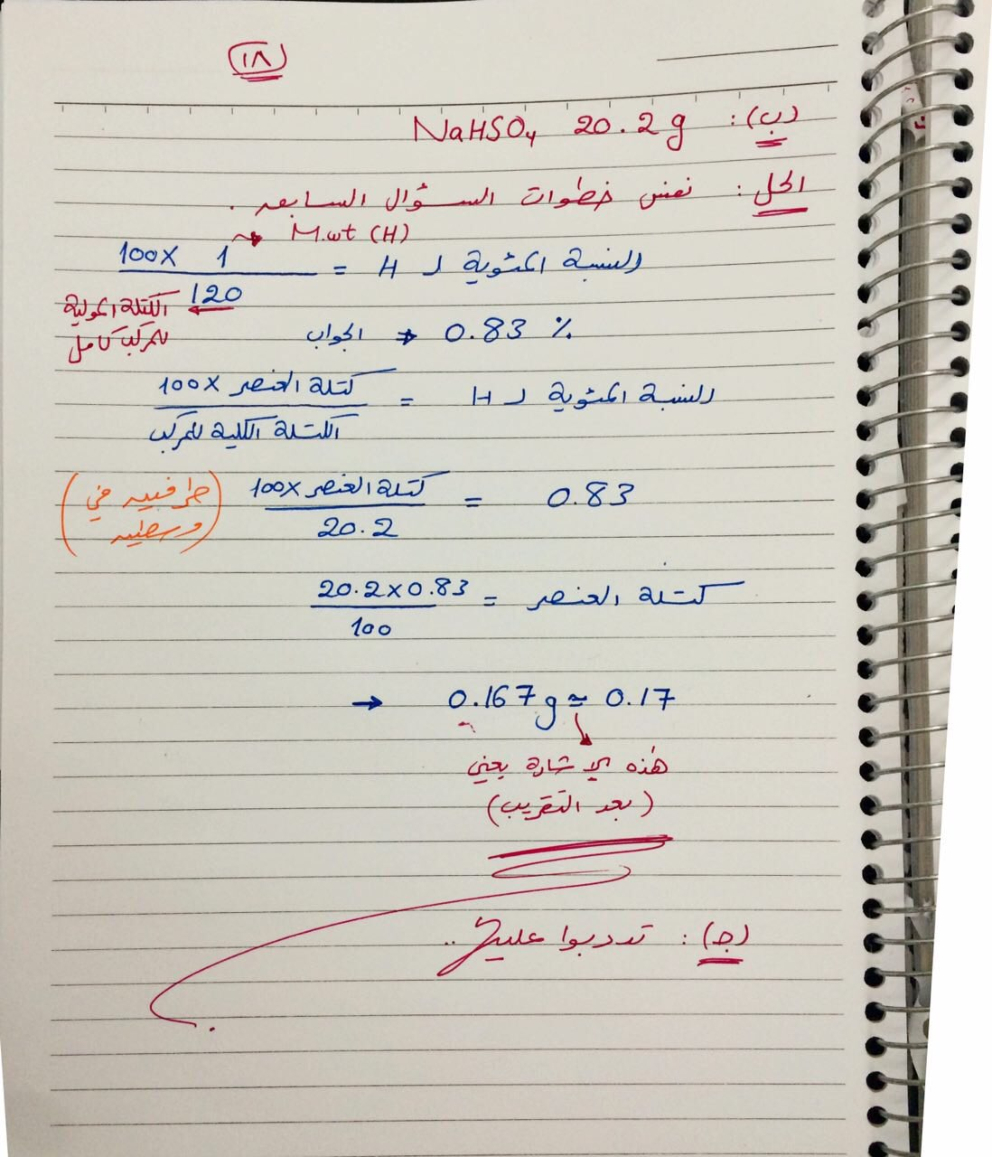 ١٨
(ب): NaHSO4 20.2 g
الحل: نفس خطوات السؤال السابق.
M.wt (H)
النسبة المئوية لـ H = 100X 1 / 120
الكتلة المولية للمركب كامل
0.83 % الجواب
النسبة المئوية لـ H = كتلة العنصر 100X / الكتلة الكلية للمركب
0.83 = كتلة العنصر 100X / 20.2
(طرفين في وسطين)
كتلة العنصر = 20.2 X 0.83 / 100
→ 0.167 g ≃ 0.17
هذه الإشارة يعني
(بعد التقريب)
(جـ): تدربوا عليه..